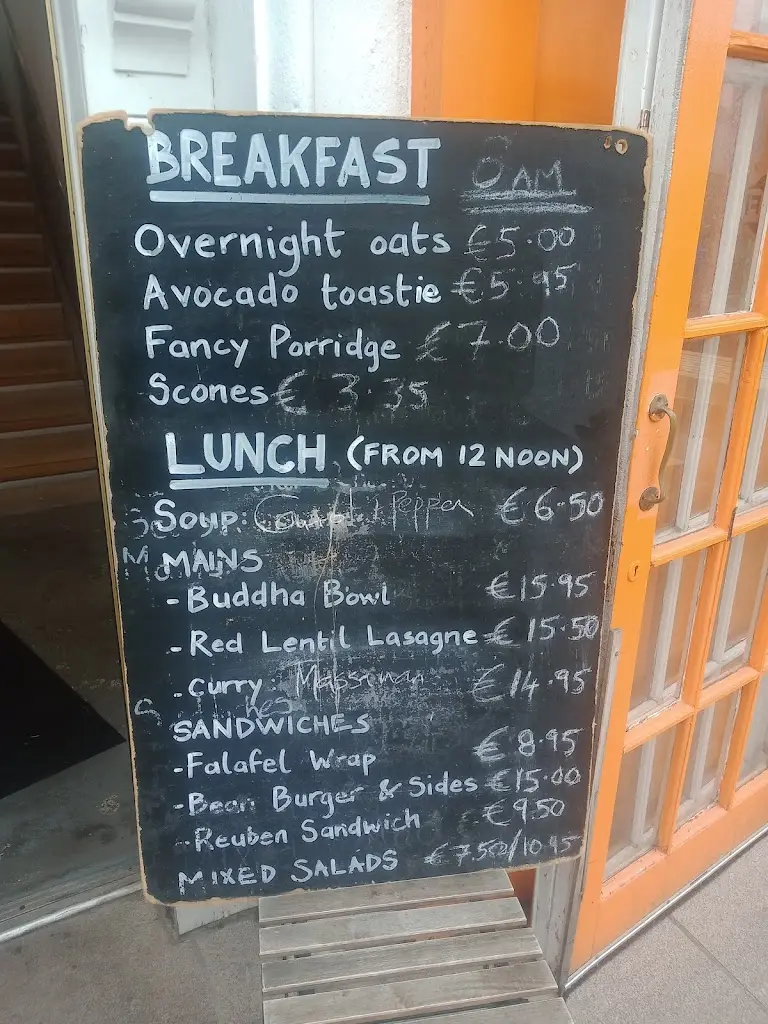 BREAKFAST 8AM
Overnight oats €5.00
Avocado toastie €5.95
Fancy Porridge €7.00
Scones € 3.35
LUNCH (FROM 12 NOON)
Soup: Pepper €6.50
MAINS
- Buddha Bowl €15.95
- Red Lentil Lasagne €15.50
- Curry Massaman €14.95
SANDWICHES
- Falafel Wrap €8.95
- Bean Burger & Sides €15.00
- Reuben Sandwich €9.50
MIXED SALADS €7.50/10.95